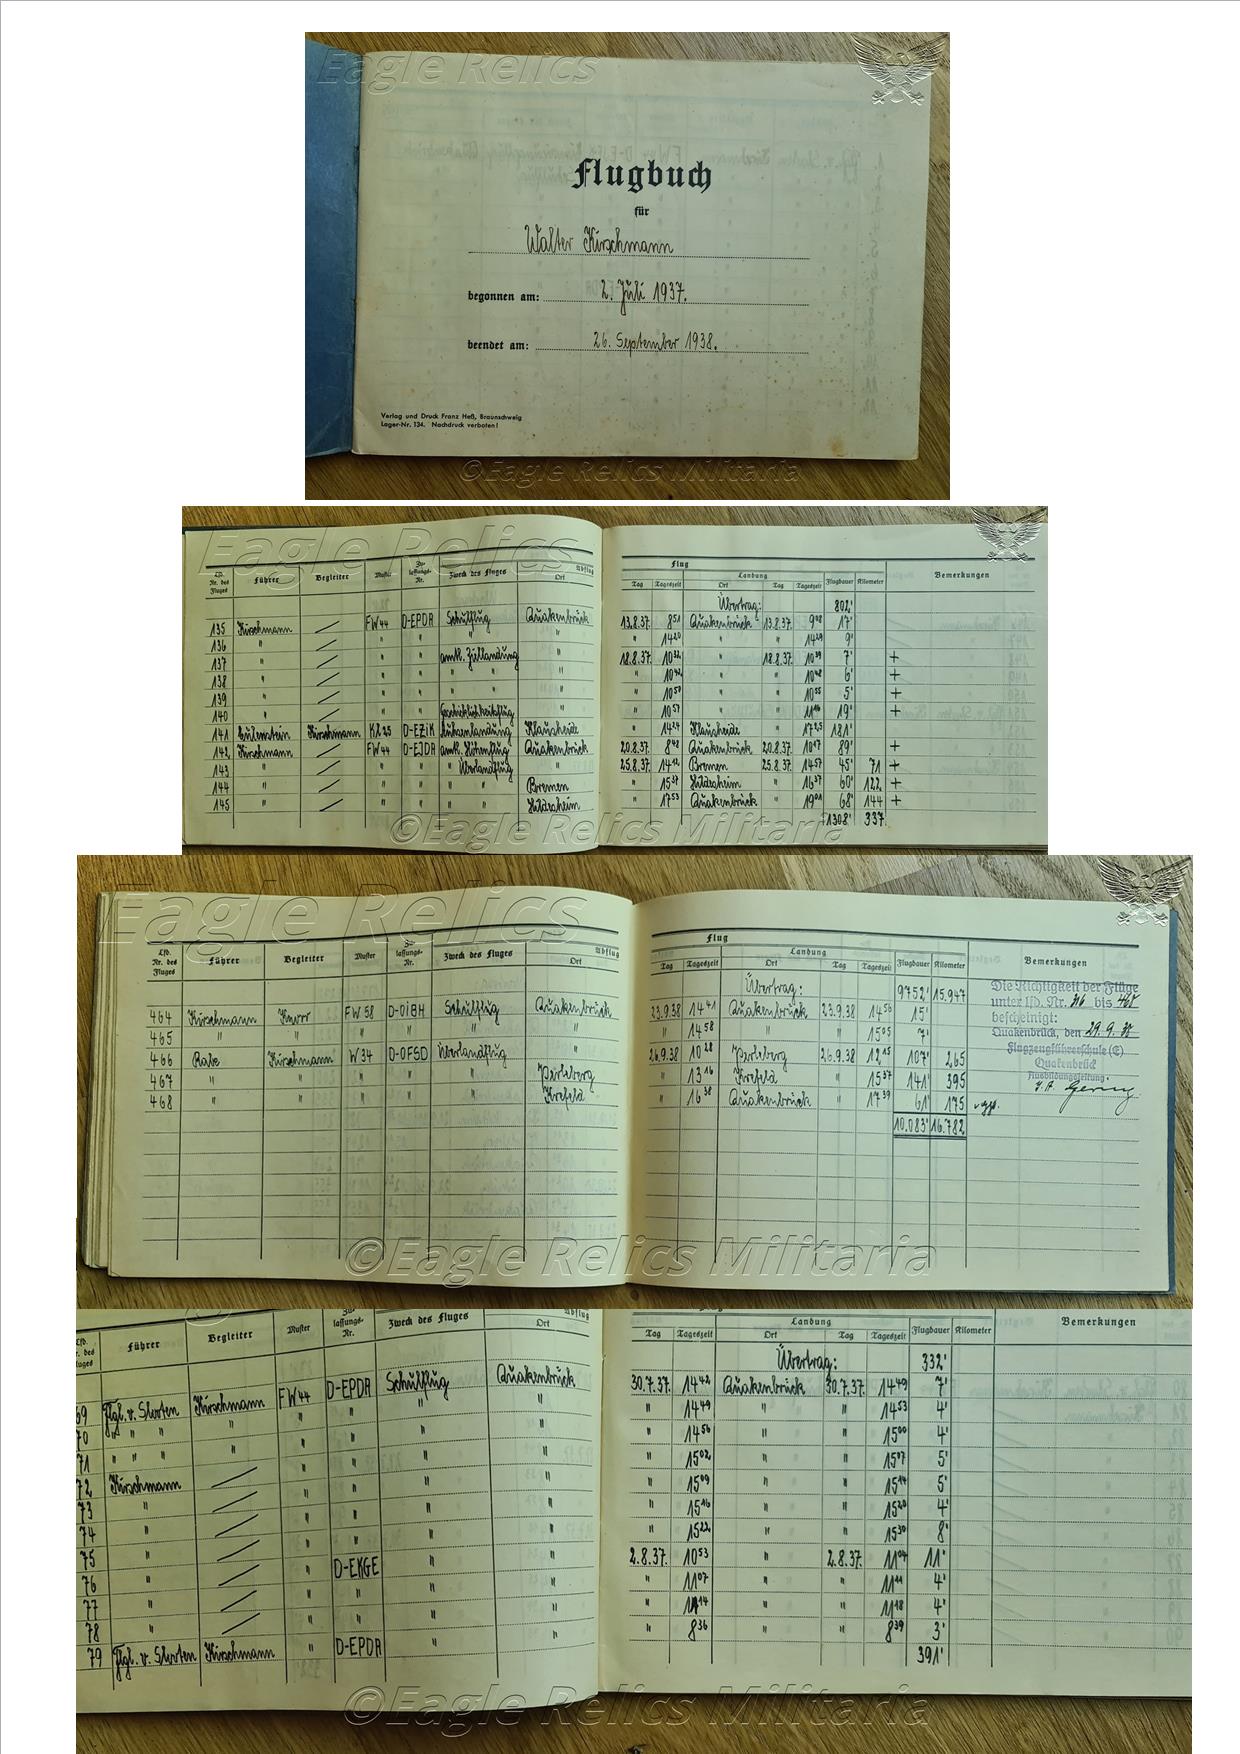 Eagle Relics
Flugbuch
für
Walter Kirschmann
begonnen am: 2. Juli 1937.
beendet am: 26. September 1938.
Verlag und Druck Franz Heß, Braunschweig
Lager-Nr. 134. Nachdruck verboten!
©Eagle Relics Militaria
Eagle Relics
Lfd. Nr. des Fluges Führer Begleiter Muster Zulassungs-Nr. Zweck des Fluges Abflug Ort Tag Tageszeit Flug Landung Ort Tag Tageszeit Flugdauer Kilometer Bemerkungen
Übertrag: 802'
135 Kirschmann FW 44 D-EPDR Schulflug Quakenbrück 13.8.37. 8 51 Quakenbrück 13.8.37. 9 08 17'
136 " " " " " " 14 20 " " 14 29 9'
137 " " " amtl. Ziellandung " 18.8.37. 10 32 " 18.8.37. 10 39 7' +
138 " " " " " " " 10 42 " " 10 48 6' +
139 " " " " " " " 10 50 " " 10 55 5' +
140 " " " Geschicklichkeitsflug " " 10 57 " " 11 16 19' +
141 Eulenstein Kirschmann Kl 25 D-EZIK Außenlandung Klausheide " 14 24 Klausheide " 17 25 181'
142 Kirschmann FW 44 D-EJDA amtl. Höhenflug Quakenbrück 20.8.37. 8 48 Quakenbrück 20.8.37. 10 17 89' +
143 " " " " Überlandflug " 25.8.37. 14 12 Bremen 25.8.37. 14 57 45' 71 +
144 " " " " " Bremen " 15 37 Hildesheim " 16 37 60' 122 +
145 " " " " " Hildesheim " 17 53 Quakenbrück " 19 01 68' 144 +
1308' 337
©Eagle Relics Militaria
Eagle Relics
Lfd. Nr. des Fluges Führer Begleiter Muster Zulassungs-Nr. Zweck des Fluges Abflug Ort Tag Tageszeit Flug Landung Ort Tag Tageszeit Flugdauer Kilometer Bemerkungen
Übertrag: 9752' 15.947
Die Richtigkeit der Flüge
unter lfd. Nr. bis 468
bescheinigt:
Quakenbrück, den 29.9.38
Flugzeugführerschule (C)
Quakenbrück
Ausbildungsleitung
464 Kirschmann Knorr FW 58 D-OIBH Schulflug Quakenbrück 23.9.38 14 41 Quakenbrück 23.9.38 14 56 15'
465 " " " " " " " 14 58 " " 15 05 7'
466 Rabe Kirschmann W 34 D-OFSD Überlandflug " 26.9.38 10 28 Perleberg 26.9.38 12 15 107' 265
467 " " " " " Perleberg " 13 16 Krefeld " 15 37 141' 395
468 " " " " " Krefeld " 16 38 Quakenbrück " 17 39 61' 175
10.083' 16.782
©Eagle Relics Militaria
Führer Begleiter Muster Zulassungs-Nr. Zweck des Fluges Abflug Ort Tag Tageszeit Landung Ort Tag Tageszeit Flugdauer Kilometer Bemerkungen
Übertrag: 332'
69 Flgl. v. Slooten Kirschmann FW 44 D-EPDR Schulflug Quakenbrück 30.7.37. 14 42 Quakenbrück 30.7.37. 14 49 7'
70 " " " " " " " " " 14 49 " " 14 53 4'
71 " " " " " " " " " 14 56 " " 15 00 4'
72 Kirschmann " " " " " 15 02 " " 15 07 5'
73 " " " " " " 15 09 " " 15 14 5'
74 " " " " " " 15 16 " " 15 20 4'
75 " " " " " " 15 22 " " 15 30 8'
76 " " D-EKGE " " 2.8.37. 10 53 " 2.8.37. 11 04 11'
77 " " " " " " 11 07 " " 11 11 4'
78 " " " " " " 11 14 " " 11 18 4'
79 Flgl. v. Slooten Kirschmann " D-EPDR " " " 8 36 " " 8 39 3'
391'
©Eagle Relics Militaria